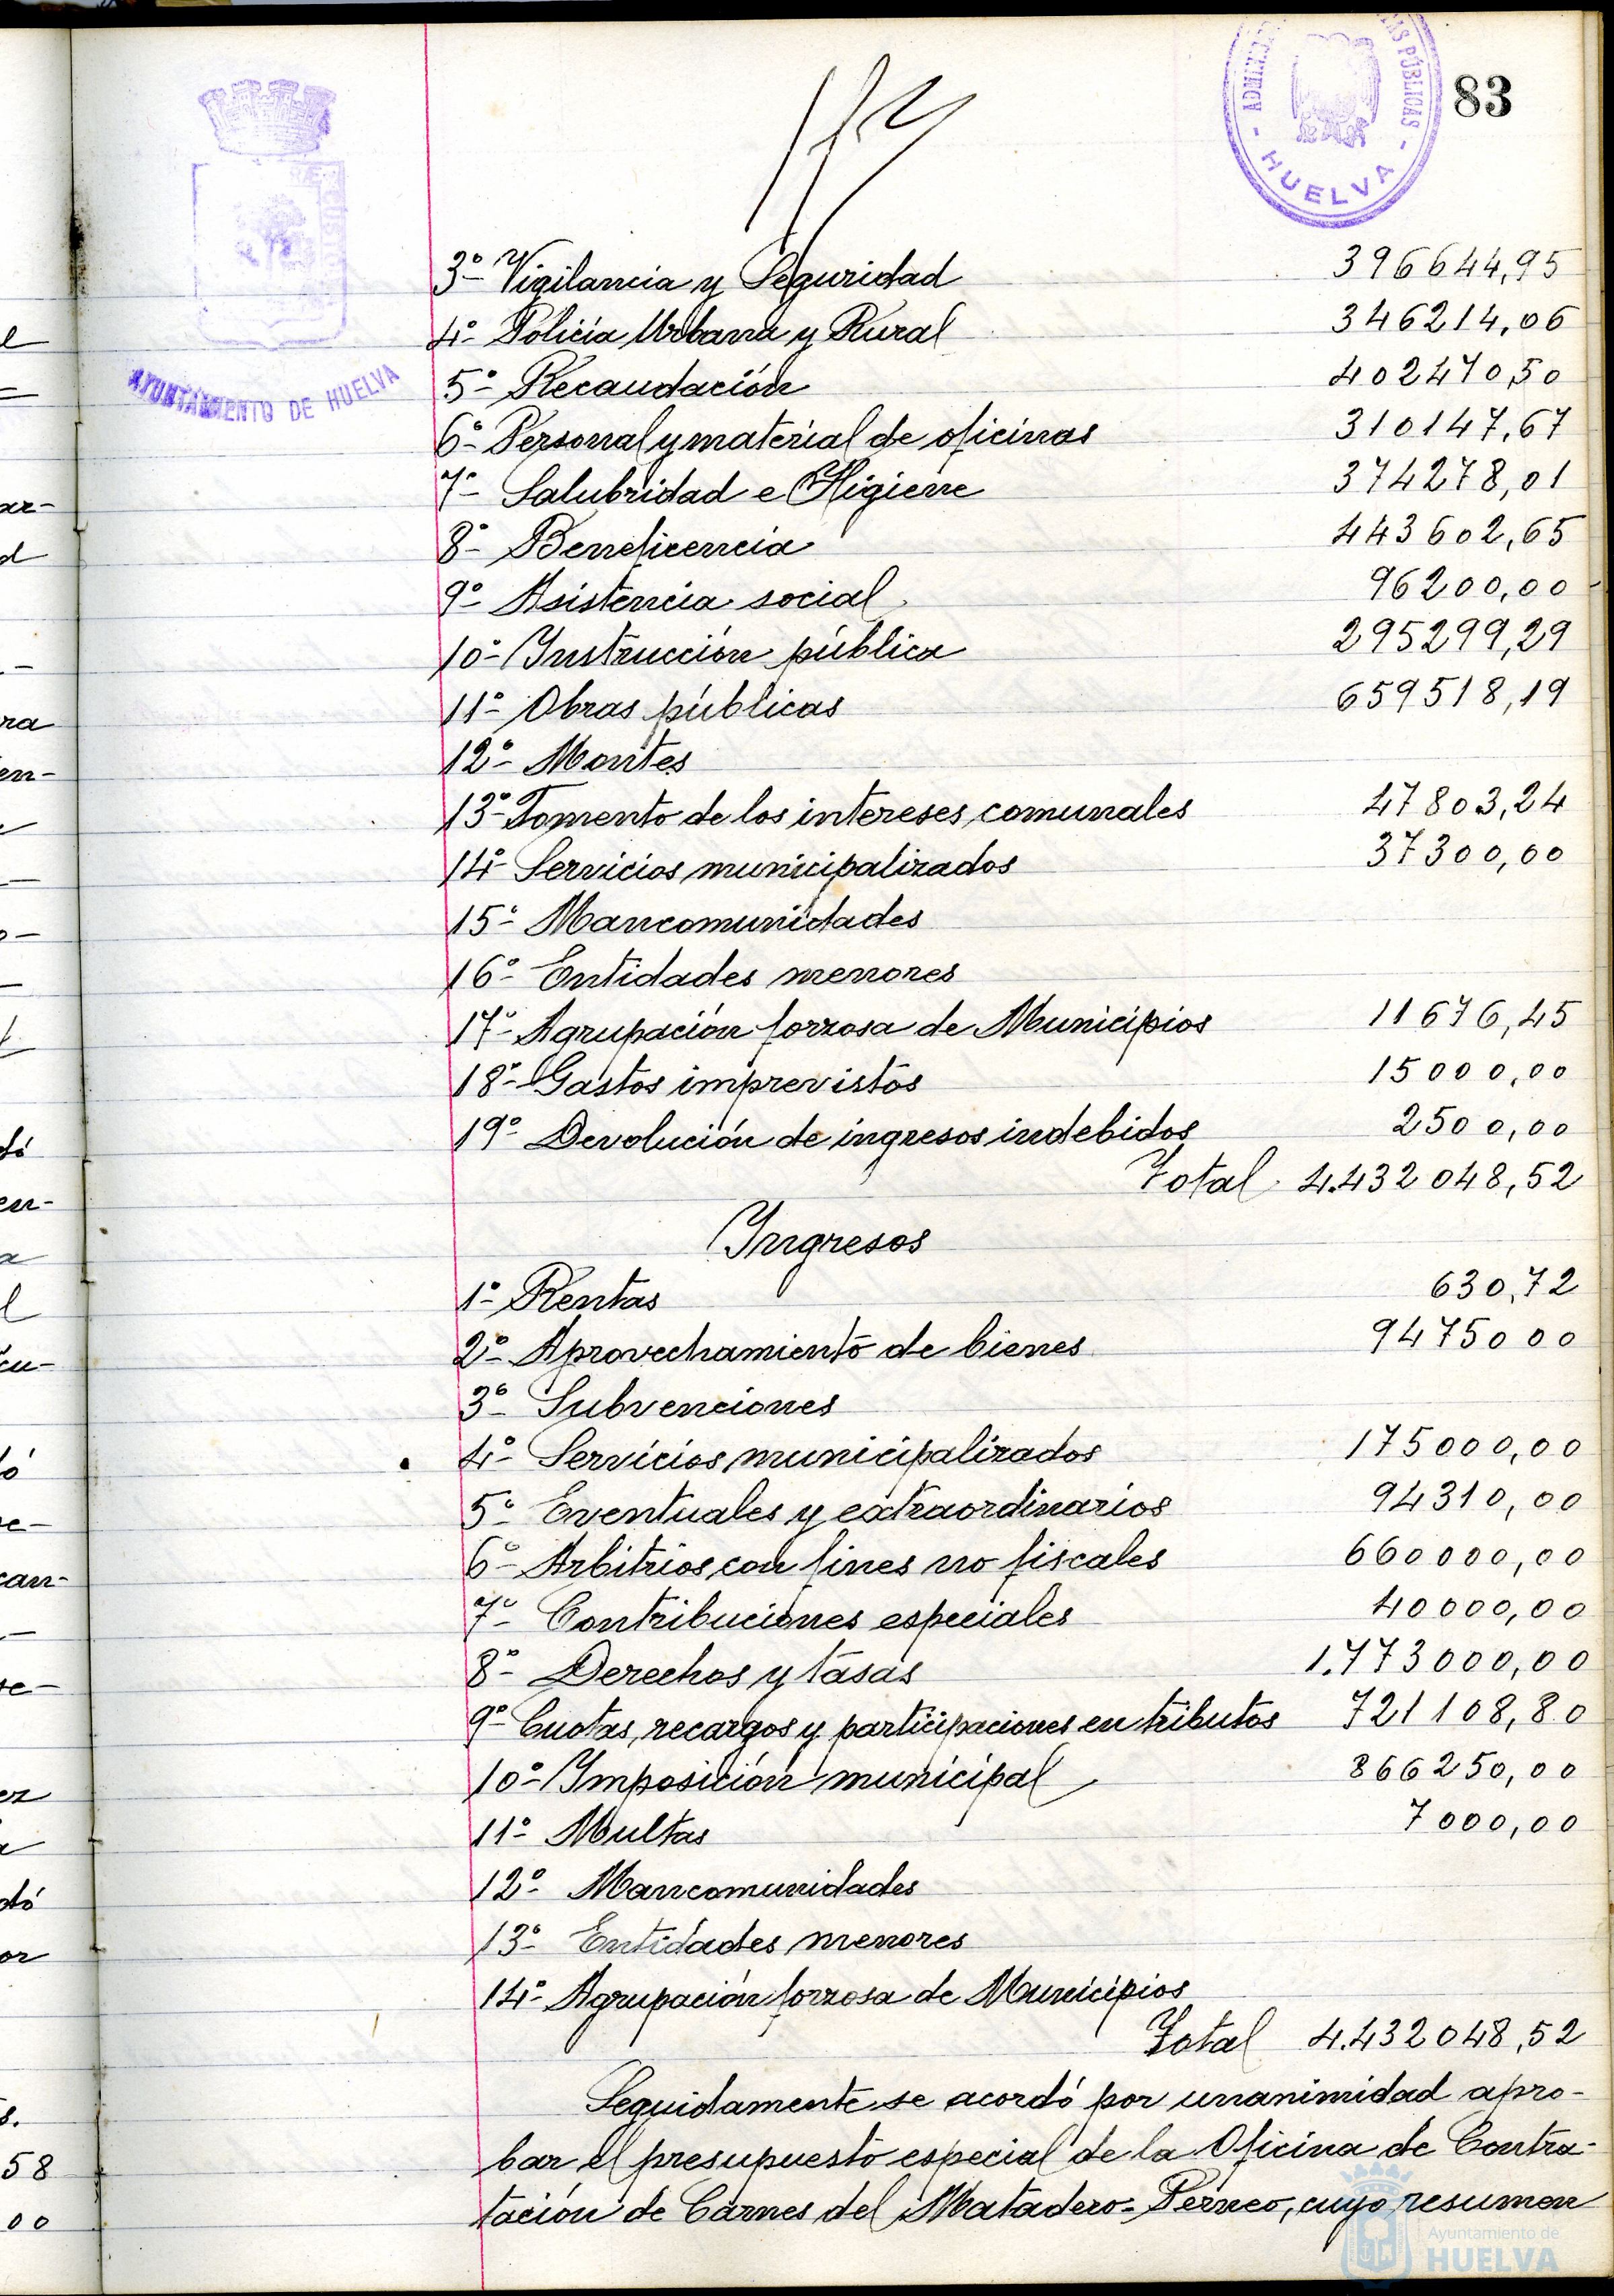 83
ADMINIS
AS PÚBLICAS
- HUELVA -
AYUNTAMIENTO DE HUELVA
3º- Vigilancia y Seguridad 396644,95
4º- Policía Urbana y Rural 346214,06
5º- Recaudación 402470,50
6º- Personal y material de oficinas 310147,67
7º- Salubridad e Higiene 374278,01
8º- Beneficencia 443602,65
9º- Asistencia social 96200,00
10º- Instrucción pública 295299,29
11º- Obras públicas 659518,19
12º- Montes
13º- Fomento de los intereses comunales 47803,24
14º- Servicios municipalizados 37300,00
15º- Mancomunidades
16º- Entidades menores
17º- Agrupación forzosa de Municipios 11676,45
18º- Gastos imprevistos 15000,00
19º- Devolución de ingresos indebidos 2500,00
Total 4.432048,52
Ingresos
1º- Rentas 630,72
2º- Aprovechamiento de bienes 94750 00
3º- Subvenciones
4º- Servicios municipalizados 175000,00
5º- Eventuales y extraordinarios 94310,00
6º- Arbitrios con fines no fiscales 660000,00
7º- Contribuciones especiales 40000,00
8º- Derechos y tasas 1.773000,00
9º- Cuotas, recargos y participaciones en tributos 721108,80
10º- Imposición municipal 866250,00
11º- Multas 7000,00
12º- Mancomunidades
13º- Entidades menores
14º- Agrupación forzosa de Municipios
Total 4.432048,52
Seguidamente se acordó por unanimidad apro-
bar el presupuesto especial de la Oficina de Contra-
tación de Carnes del Matadero-Perneo, cuyo resumen
58
00
Ayuntamiento de
HUELVA